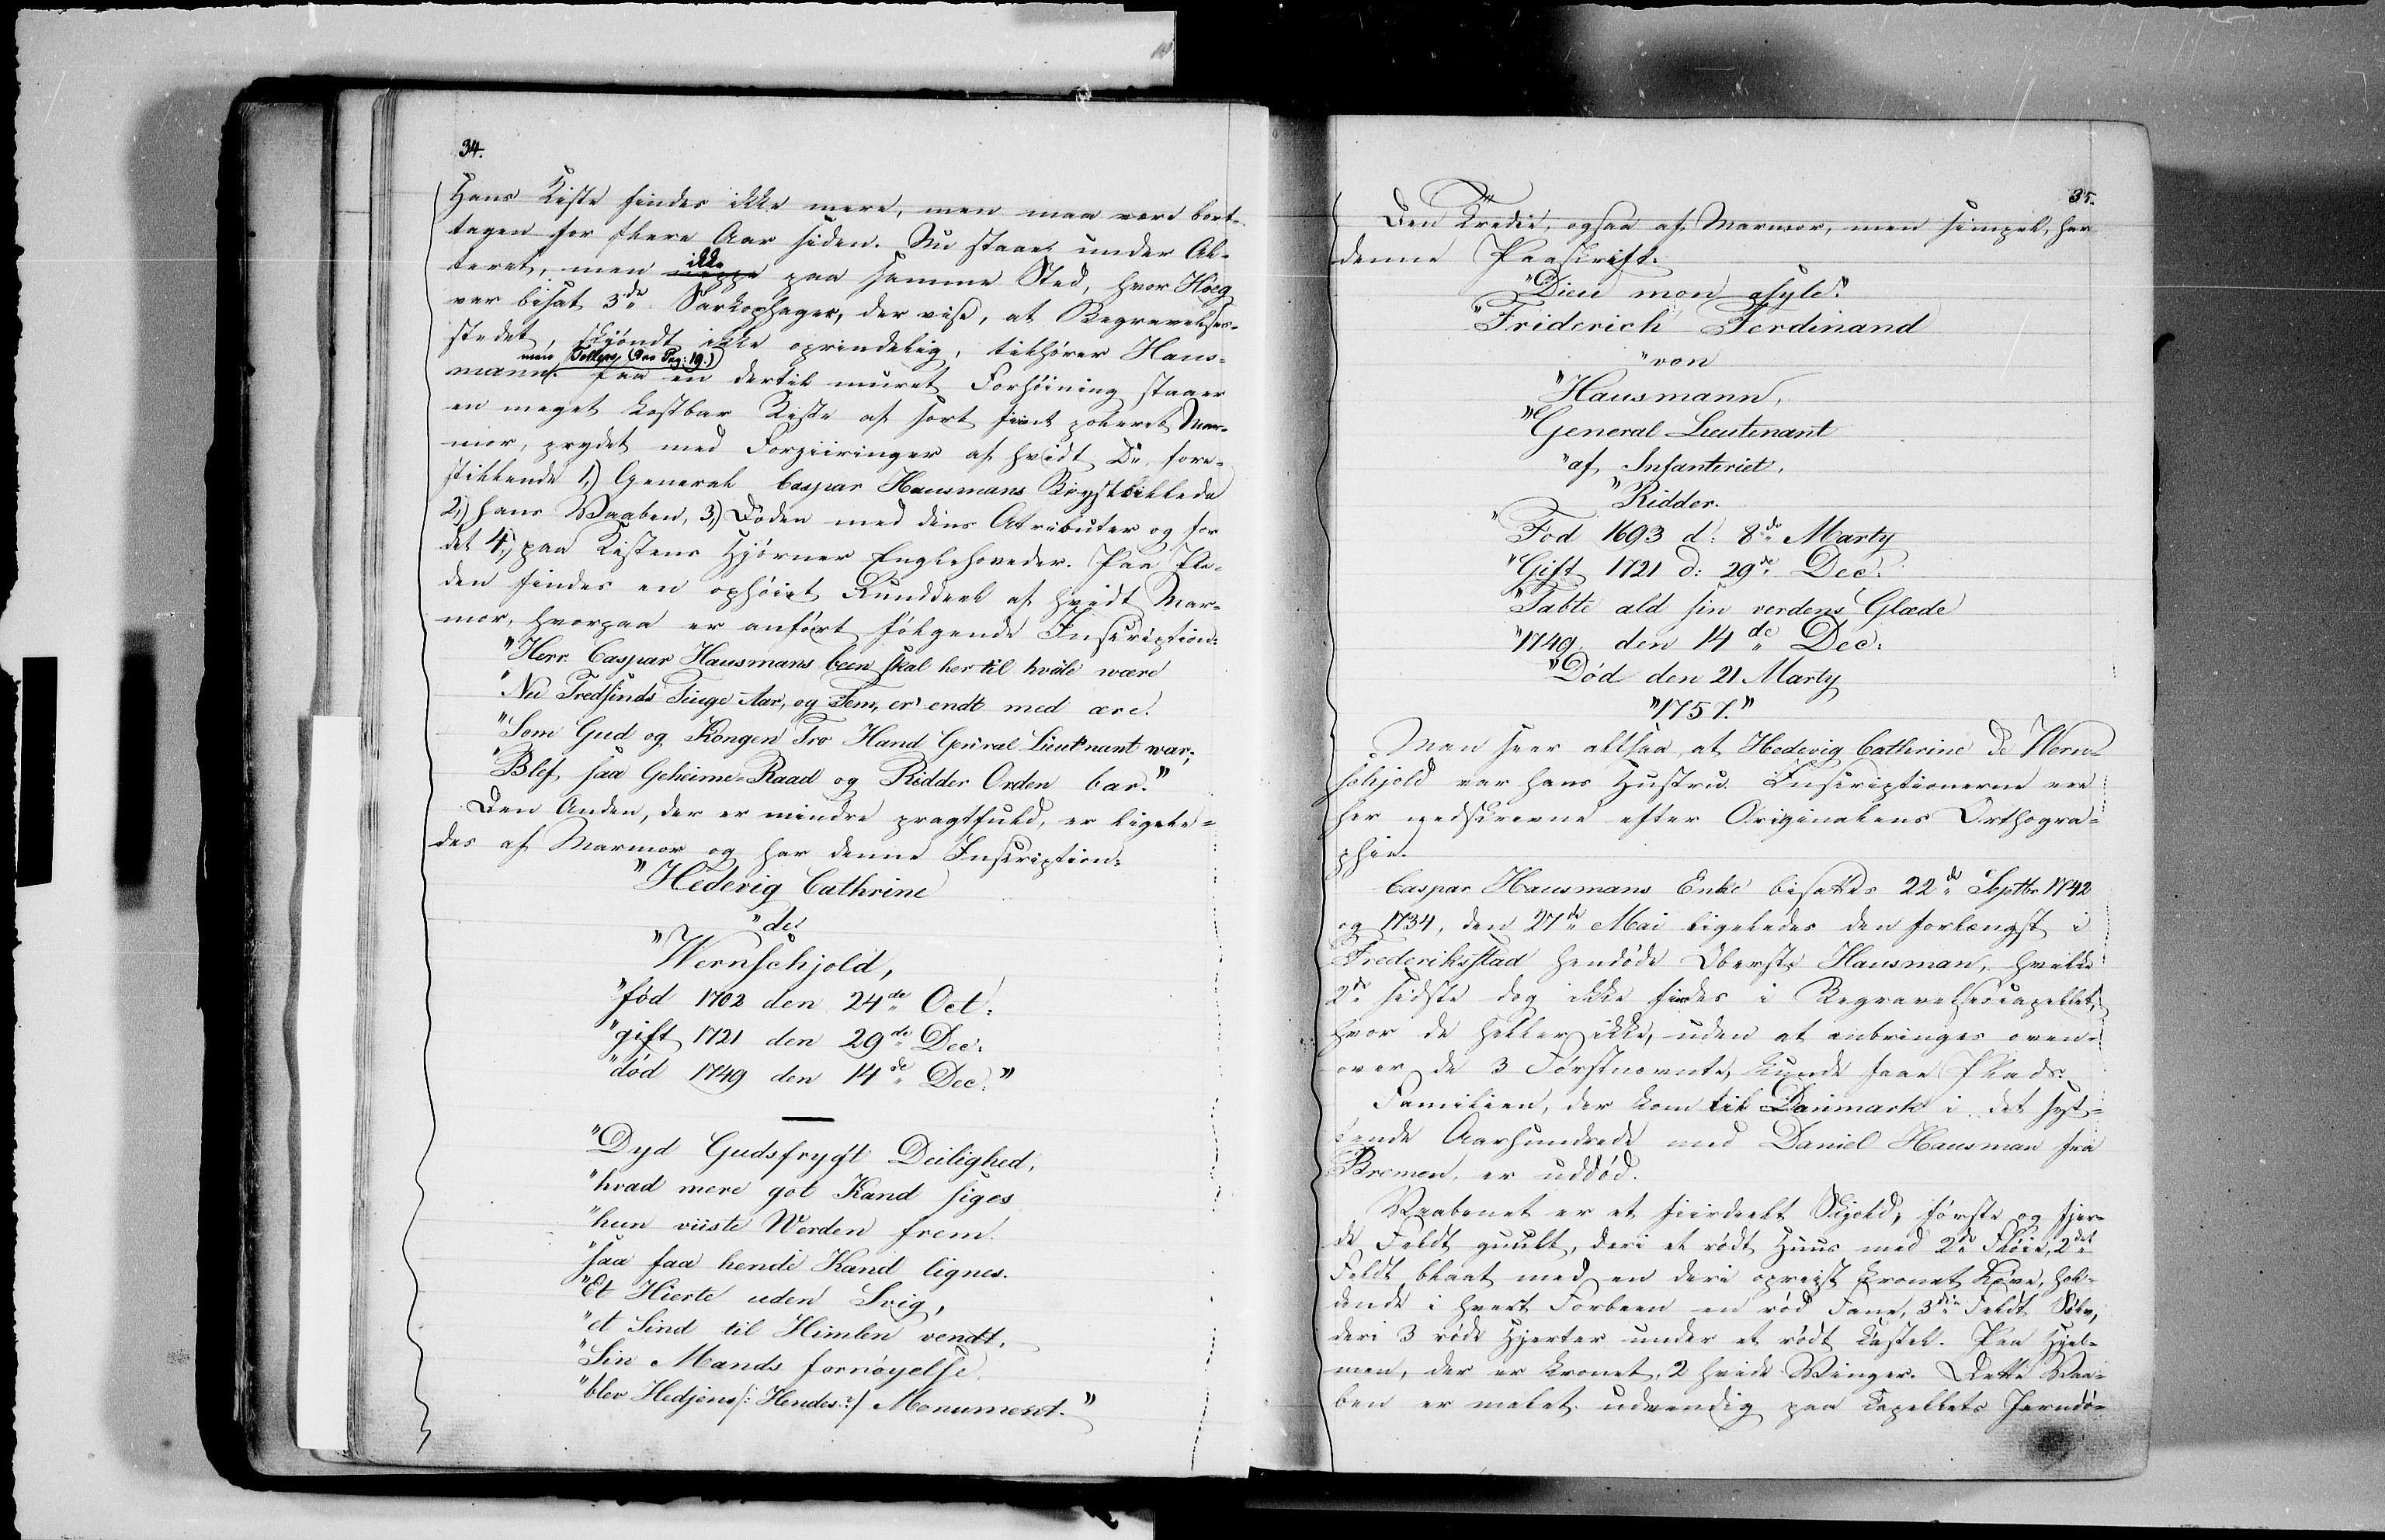 34.
Hans Kiste findes ikke mere, men maa være bort-
tagen for flere Aar siden. Nu staaer under Al-
teret, men ikke paa samme Sted, hvor Höeg
var bisat 3de Sarkophager, der vise, at Begravelses-
stedet, skjöndt ikke oprindelig, tilhörer Haus-
men Tollers (see Pag: 19.)
mann. Paa en dertil muret Forhöining staaer
en meget kostbar Kiste af sort fiint poleret Mar-
mor, prydet med Forziiringer af hvidt Do, fore-
stillende 1,) General Caspar Hausmans Brystbillede
2,) hans Vaaben, 3,) Döden med dens Atributer og for
det 4,) paa Kistens Hjörner Englehoveder. Paa Fla-
den findes en ophöiet Runddeel af hvidt Mar-
mor, hvorpaa er anfört fölgende Inscription:
"Herr Caspar Hausmans been skal her til hvile være
"Nu Tredsinds Tiuge Aar, og Fem, er endt med ære.
"Som Gud og Kongen Tro Hand General Lieutnant war;
"Blef saa Geheime-Raad og Ridder Orden bar."
Den Anden, der er mindre pragtfuld, er ligele-
des af Marmor og har denne Inscription:
"Hedevig Cathrine
"de
"Wernschjold,
"född 1702 den 24de Oct:
"gift 1721 den 29de Dec:
"död 1749 den 14de Dec:"
"Dyd Gudsfrygt Deilighed,
"hvad mere got Kand siges
"hun viiste Werden frem.
"saa faa hende Kand lignes.
"Et Hierte uden Svig,
"et Sind til Himlen vendt,
"Sin Mands fornöyelse,
"blev Hedjens /: Hendes?:/ Monument."
35.
Den Tredie, ogsaa af Marmor, men simpel, har
denne Paaskrift:
"Dieu mon asyle."
"Friderich Ferdinand
"von
"Hausmann,
"General Lieutenant
"af Infanteriet,
"Ridder.
"Fod 1693 d: 8de Marty
"Gift 1721 d: 29de Dec:
"Tabte ald sin verdens Glæde
"1749 den 14de Dec:
"Död den 21 Marty
"1757."
Man seer altsaa, at Hedevig Cathrine de Wern-
schjold var hans Hustru. Inscriptionerne ere
her nedskrevne efter Originalens Orthogra-
phie.
Caspar Hausmans Enke bisattes 22de Septbr 1742
og 1734, den 27de Mai ligeledes den forlængst i
Frederiksstad hendöde Oberst Hausman, hvilke
2de sidste dog ikke findes i Begravelsescapellet,
hvor de heller ikke, uden at anbringes oven-
over de 3 Förstnævnte, kunde faae Plads.
Familien, der kom til Danmark i det syt-
tende Aarhundrede med Daniel Hausman fra
Bremen, er uddöd.
Vaabenet er et fiirdeelt Skjold; förste og fjer-
de Feldt guult, deri et rödt Huus med 2de Flöie, 2det
Feldt blaat med en deri opreist kronet Löve, hol-
dende i hvert Forbeen en röd Fane, 3die Feldt Sölv,
deri 3 röde Hjerter under et rödt Kastel. Paa Hjel-
men, der er kronet, 2 hvide Vinger. Dette Vaa-
ben er malet udvendig paa Capellets Jerndö-